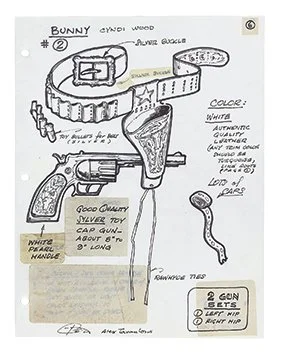 BUNNY CYNDI WOOD
6
# 2
SILVER BUCKLE
SILVER BUCKLE
TOY BULLETS FOR BELT
(SILVER)
COLOR:
WHITE
AUTHENTIC
QUALITY
LEATHER
(ANY TRIM COLOR
SHOULD BE
TURQUOISE,
LIKE BOOTS
LOTS of
CAPS
GOOD QUALITY
SILVER TOY
CAP GUN-
ABOUT 8" TO
9" LONG
WHITE
PEARL
HANDLE
RAWHIDE TIES
2 GUN
SETS
1 LEFT HIP
1 RIGHT HIP